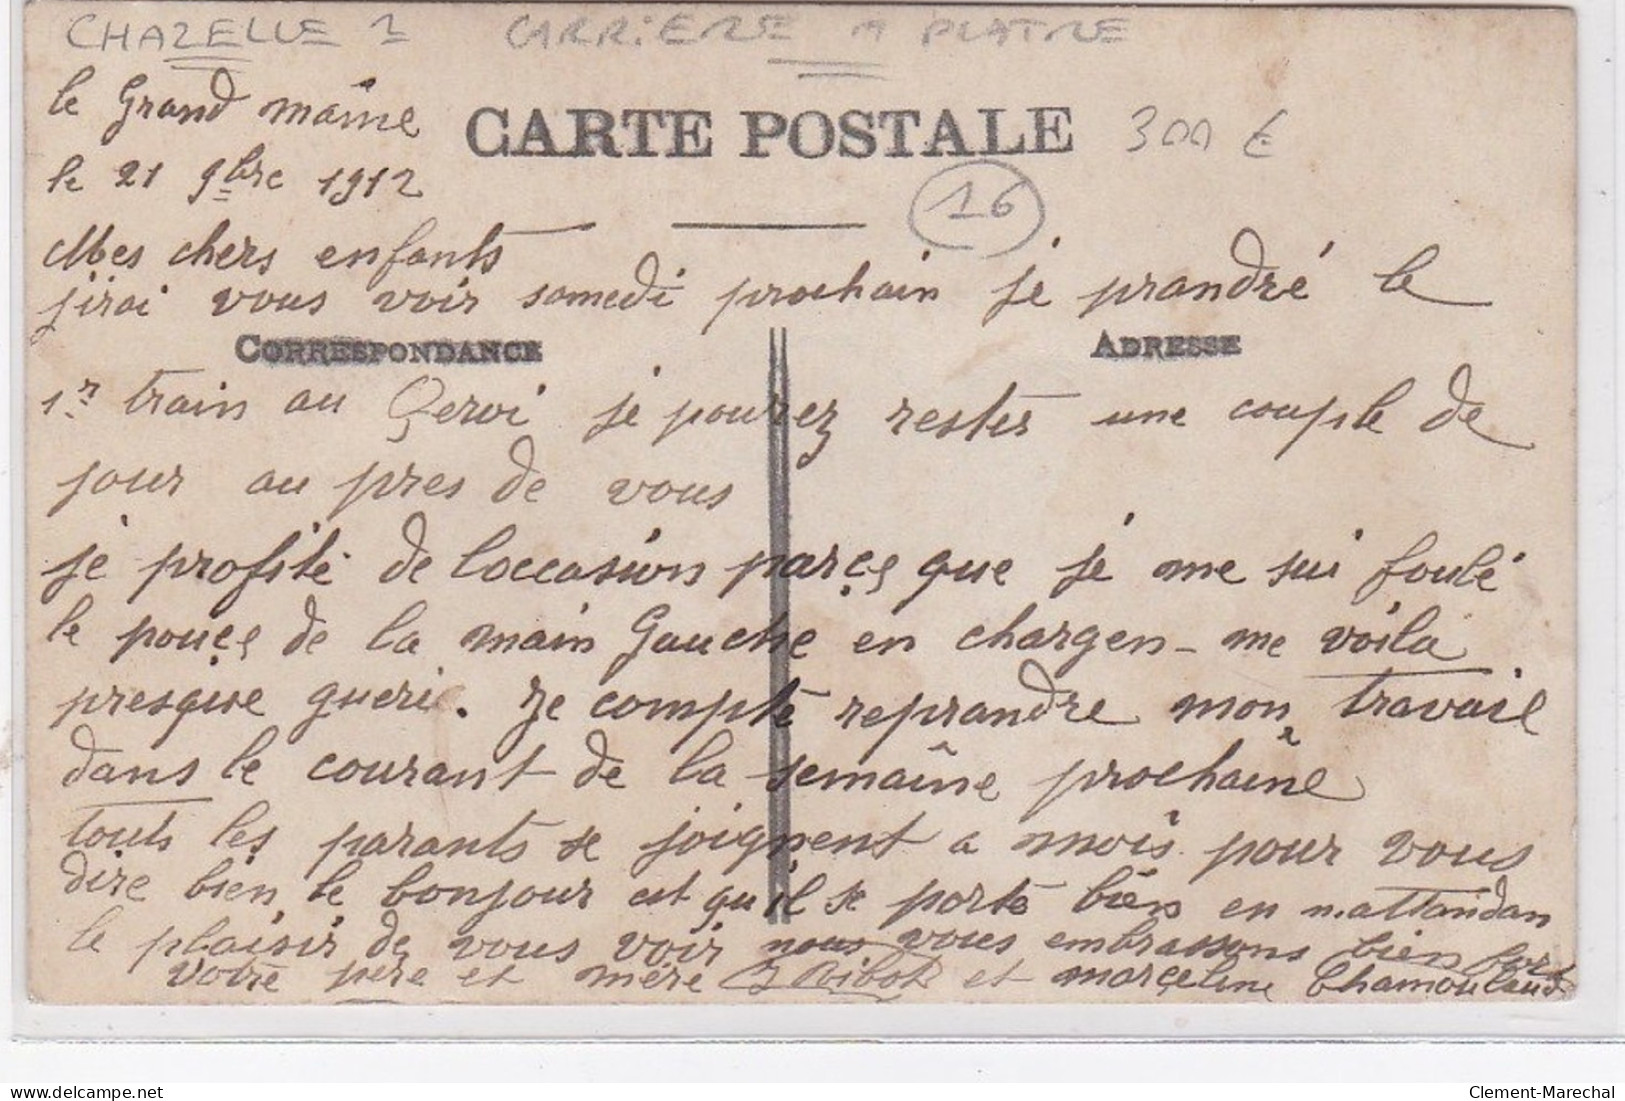 CHAZELLE ? CARRIERE A PLATRE
le Grand maine
CARTE POSTALE 300 €
le 21 9bre 1912
16
Mes chers enfants
jirai vous voir samedi prochain je prandré le
CORRESPONDANCE ADRESSE
1r train au je pourez rester une couple de
jour au pres de vous
je profite de loccasion parçe que je me sui foulé
le pouçe de la main Gauche en chargen me voila
presque gueri. Je compte reprandre mon travail
dans le courant de la semaîne prochaîne
touts les parants se joignent a mois pour vous
dire bien le bonjour est qu'il se porte bien en mattandan
le plaisir de vous voir nous vous embrassons bien fort
Votre père et mère et marçeline Chamoulaud
Clement-Marechal